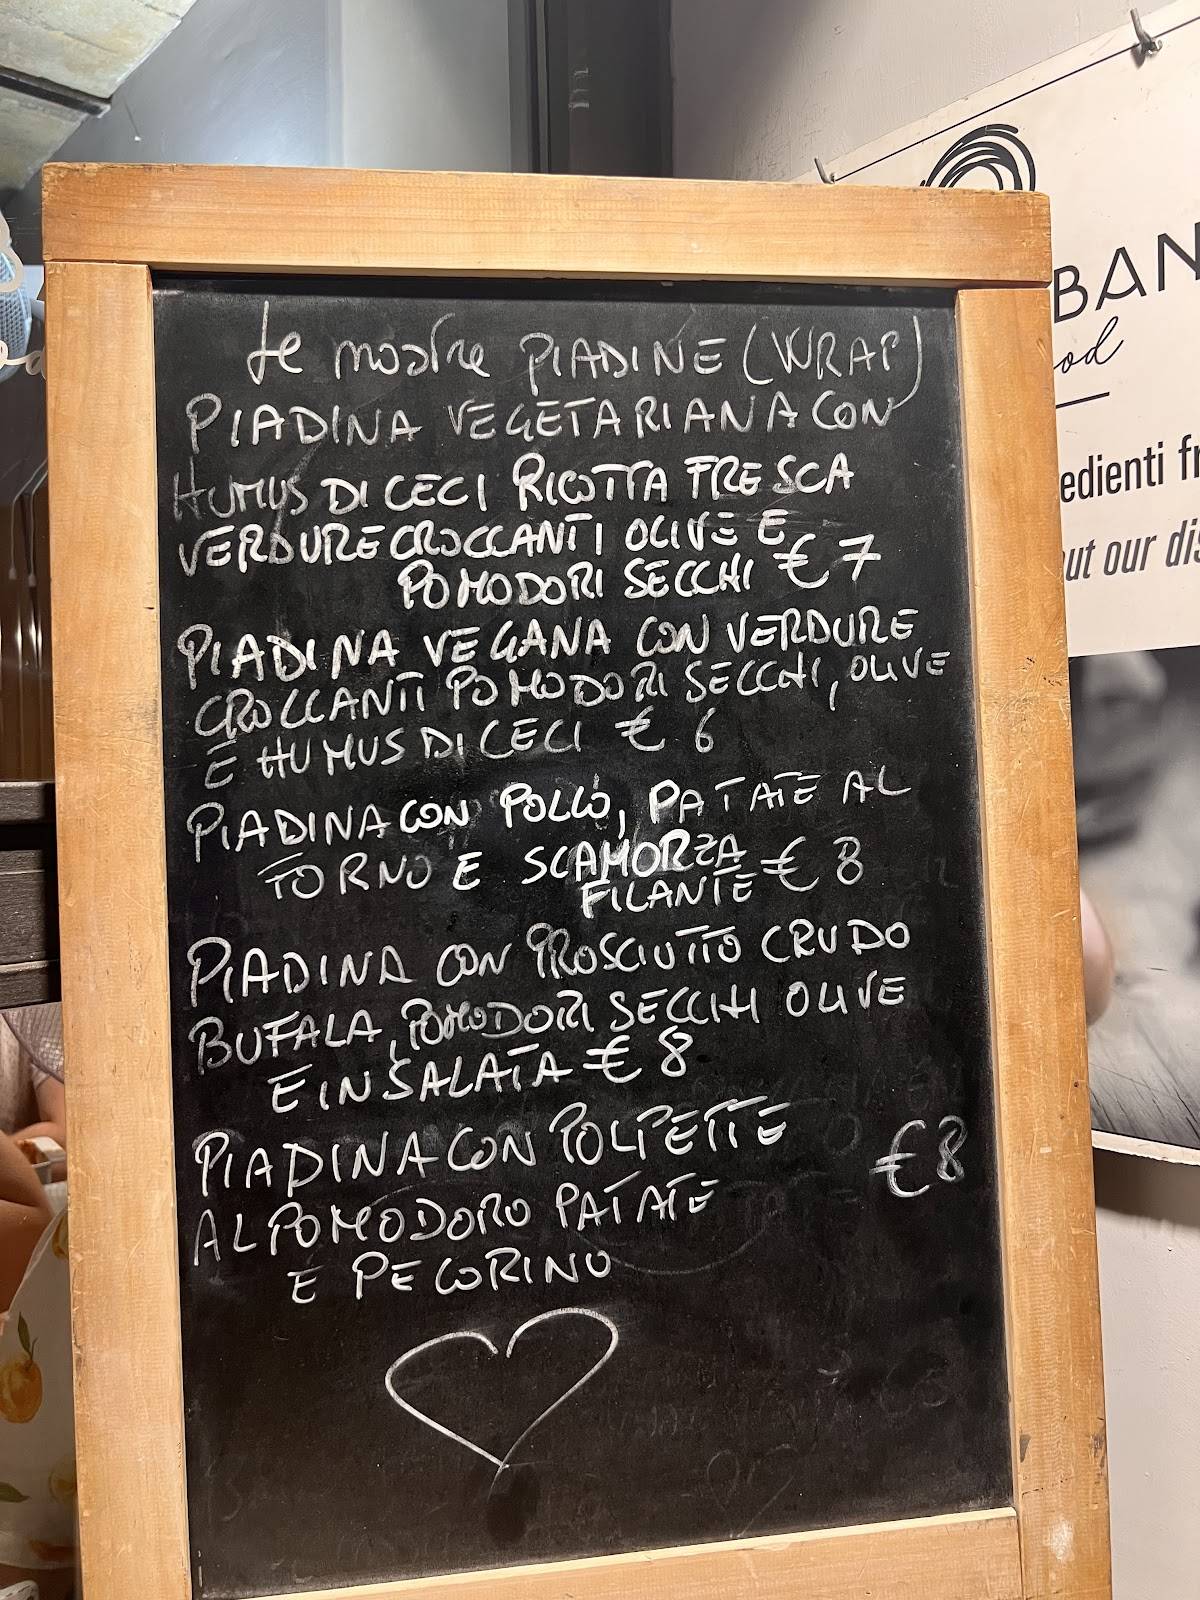 Le nostre PIADINE (WRAP)
PIADINA VEGETARIANA CON
HUMUS DI CECI RICOTTA FRESCA
VERDURE CROCCANTI OLIVE E
POMODORI SECCHI € 7
PIADINA VEGANA CON VERDURE
CROCCANTI POMODORI SECCHI, OLIVE
E HUMUS DI CECI € 6
PIADINA CON POLLO, PATATE AL
FORNO E SCAMORZA
FILANTE € 8
PIADINA CON PROSCIUTTO CRUDO
BUFALA, POMODORI SECCHI OLIVE
E INSALATA € 8
PIADINA CON POLPETTE
AL POMODORO PATATE € 8
E PECORINO
BAN
od
edienti fr
ut our dis